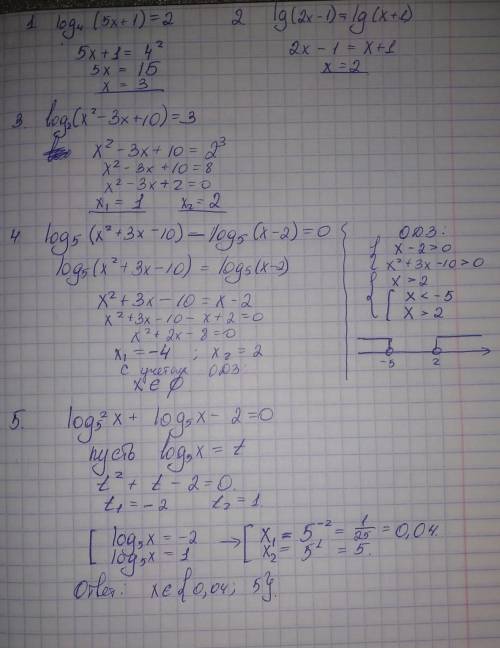 1 log₄(5x+1)=2
5x+1=4²
5x=15
x=3
2 lg(2x-1)=lg(x+1)
2x-1=x+1
x=2
3. log₂(x²-3x+10)=3
x²-3x+10=2³
x²-3x+10=8
x²-3x+2=0
x₁=1 x₂=2
4 log₅(x²+3x-10)-log₅(x-2)=0
log₅(x²+3x-10)=log₅(x-2)
x²+3x-10=x-2
x²+3x-10-x+2=0
x²+2x-8=0
x₁=-4 ; x₂=2
с учетом ОДЗ:
x∈∅
ОДЗ:
{ x-2>0
x²+3x-10>0
{ x>2
[ x<-5
x>2
-5 2
5. log₅²x+log₅x-2=0
пусть log₅x=t
t²+t-2=0
t₁=-2 t₂=1
[ log₅x=-2 → [ x₁=5⁻²=1/25=0,04.
log₅x=1 x₂=5¹=5.
Ответ: x∈{0,04; 5}.